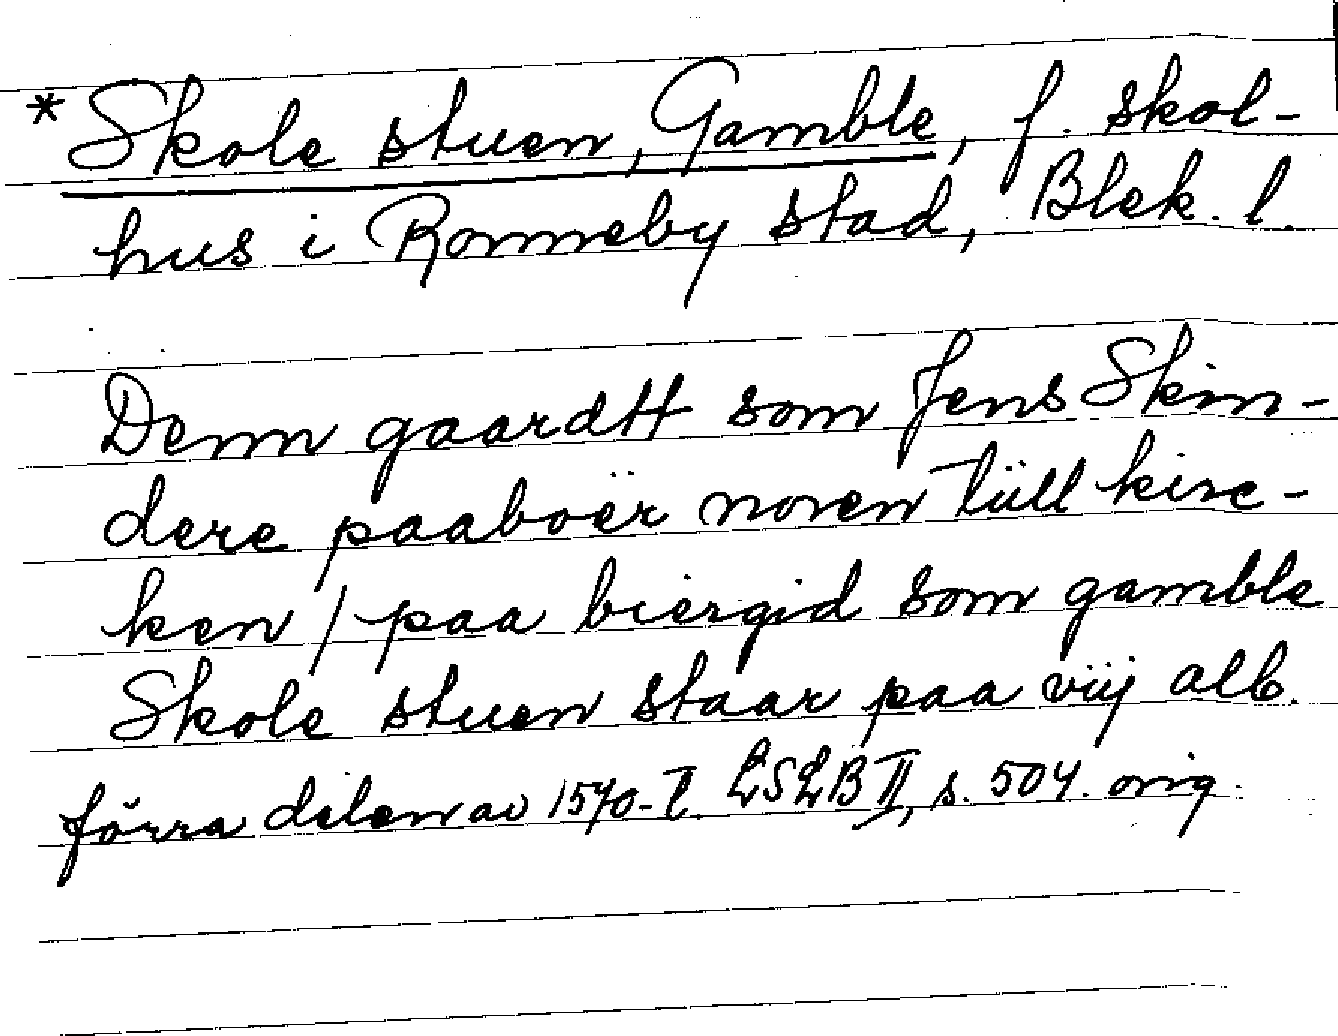 * Skole stuen, Gamble, f. skol-
hus i Ronneby stad, Blek. l.
Denn gaardtt som Jens Skin-
dere paaboër noren tüll kirc-
ken / paa biergid som gamble
Skole stuen staar paa viij alb.
förra delen av 1570-t. LSLB II, s. 504. orig.